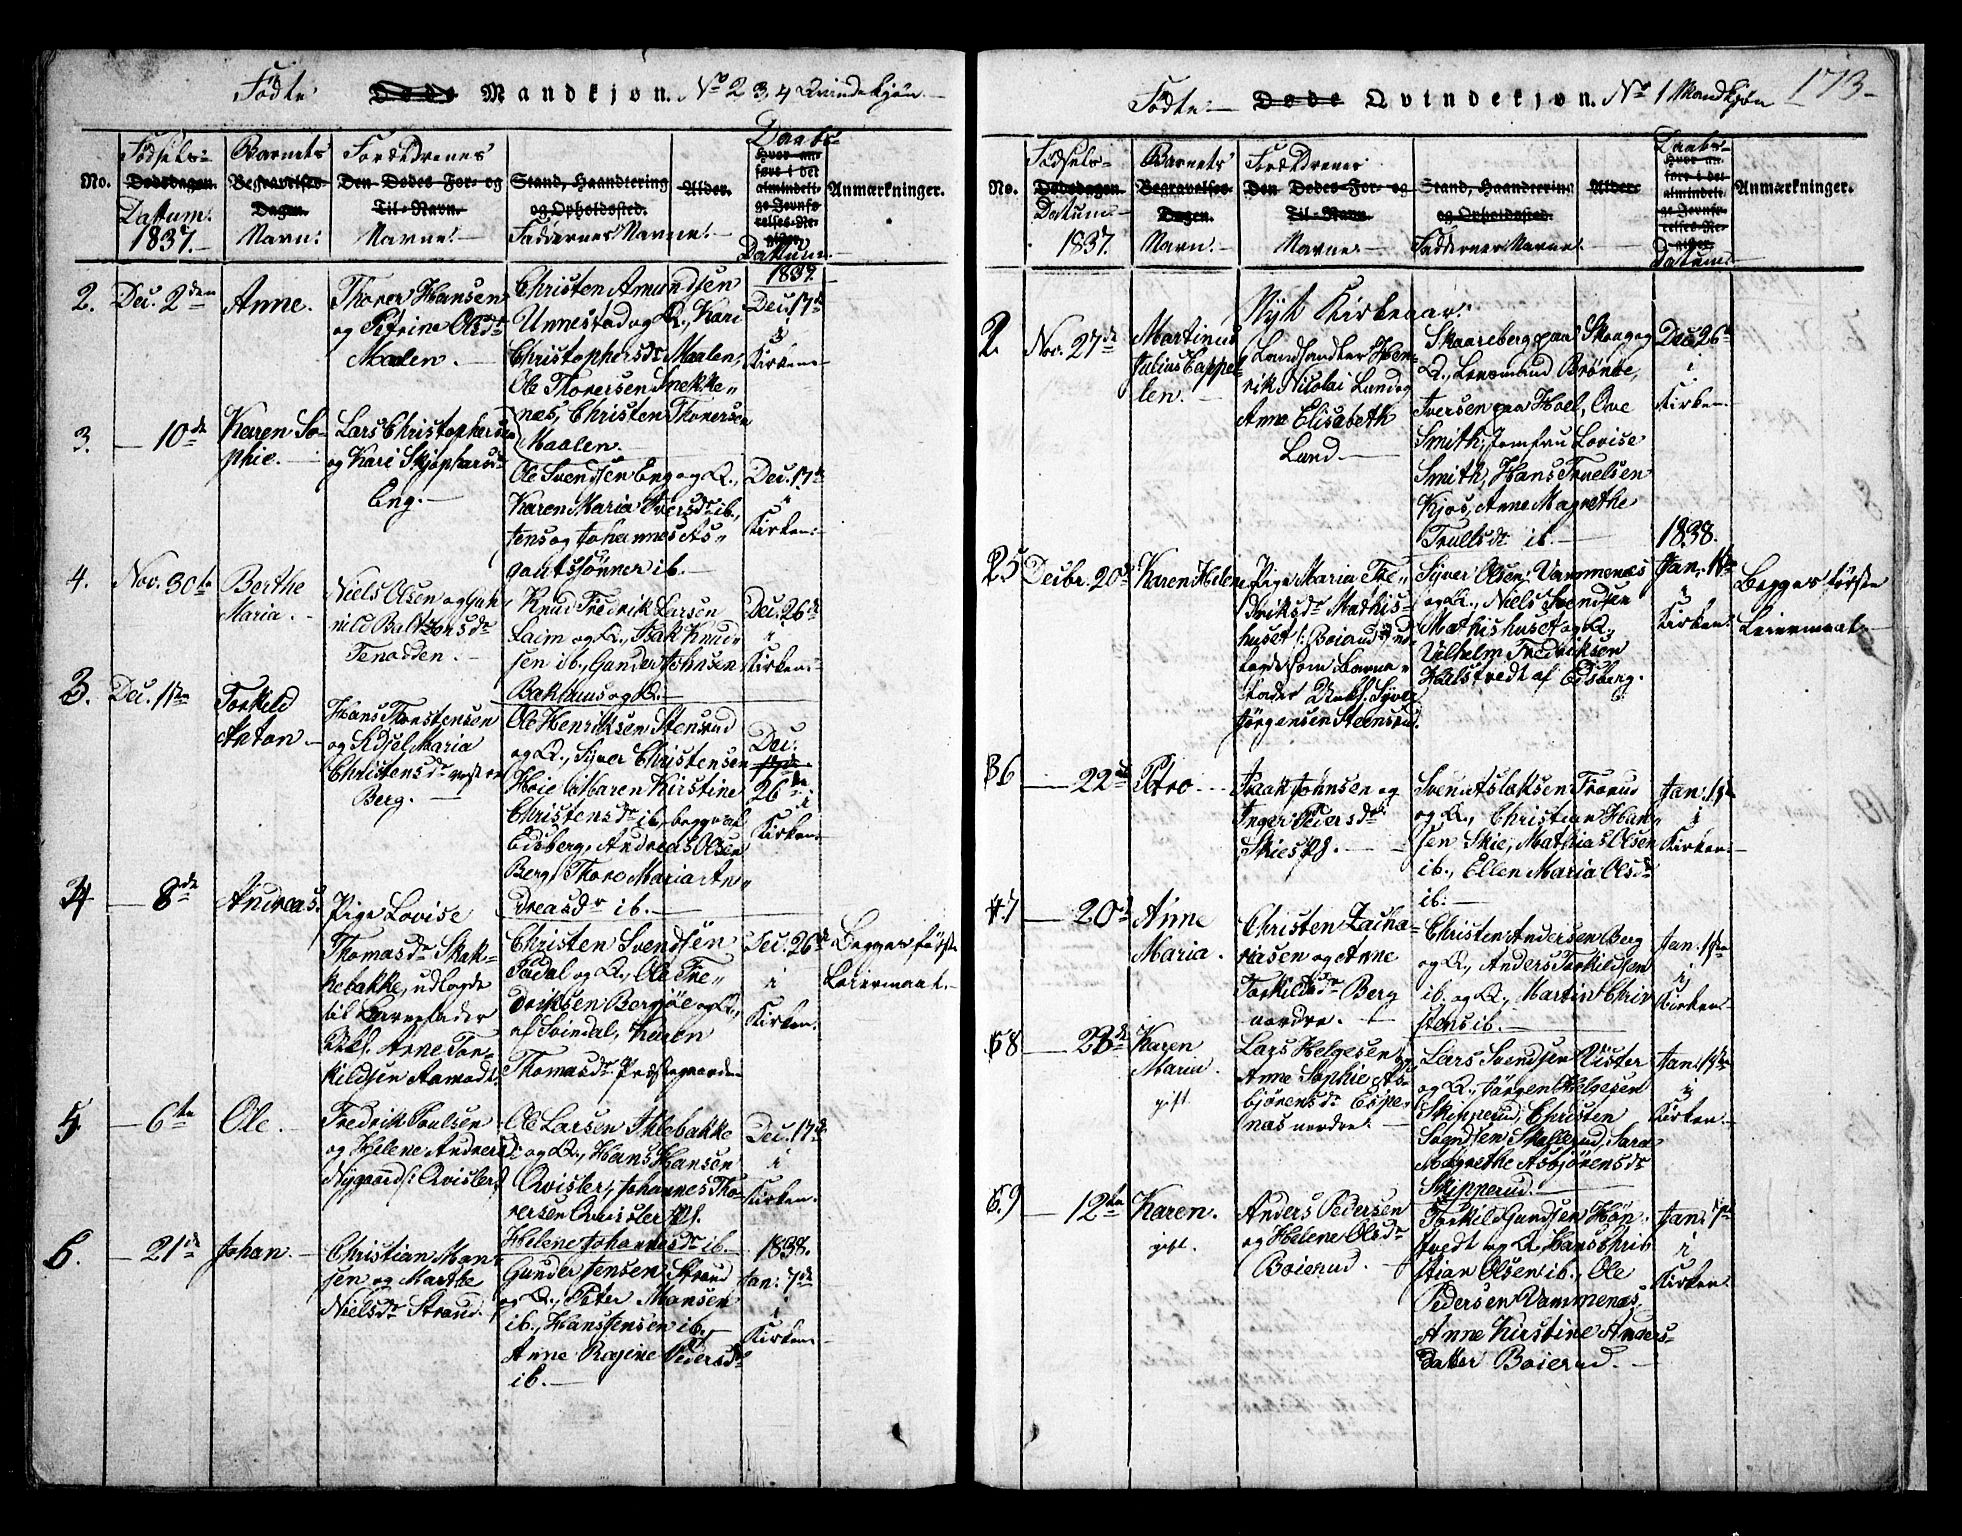 Fødte: Døde Mandkjøn. No 2 3, 4 Qvindekjøn.
No.
Fødsels-
Dødsdagen.
Datum.
1837.
Barnets
Begravelses-
Dagen.
Navn:
Forældrenes
Den Dødes For- og
Til-Navn.
Navne:
Stand, Haandtering
og Opholdssted.
Faddernes Navne:
Alder.
Daabs-
Hvor an-
ført i det
almindeli-
ge Jevnfø-
relses-Re-
gister.
Datum.
Anmærkninger.
2. Dec. 2den
Anne.
Thorer Hansen
og Petrine Olsdr
Maalen.
Christen Amundsen
Unnestad og Q., Kari
Christophersdr Maalen,
Ole Thorersen Snekke-
næs, Christen Thorersen
Maalen.
1837.
Dec. 17de
i
Kirken:
3. — 10de
Karen So-
phie.
Lars Christophersen
og Kari Skjøphersdr
Eng.
Ole Svendsen Eng og Q.,
Karen Maria Iversdr ib.,
Jens og Johannes As-
gautsønner ib.
Dec. 17de
i
Kirken:
4. Nov. 30te
Berthe
Maria.
Niels Olsen og Gun-
nild Baltzersdr
Tenodden.
Knud Fredrik Larsen
Laim og Q., Isak Knud-
sen ib., Gunder Johnsen
Bakhuus og Q.
Dec. 26de
i
Kirken:
3. Dec. 1ste
Torkeld
Anton
Hans Thorstensen
og Sidsel Maria
Christensdr
Berg.
Ole Henriksen Stensrud
og Q., Syver Christensen
Hoie, Maren Kirstine
Christensdr ib., begge af
Edsberg, Andreas Olsen
Berg, Thore Maria An-
dreasdr ib.
Dec.
17de
26de
i
Kirken:
4 — 8de
Andreas.
Pige Lovise
Thomasdr Skak-
kebakke, udlagde
til Barnefader
Ukf. Arne Tor-
kildsen Aamodt.
Christen Svendsen
Tadal og Q., Ole Fre-
driksen Bergsøe og Q.,
af Svindal, Karen
Thomasdr Præstegaarden
Dec. 26de
i
Kirken:
Begges første
Leiermaal.
5 — 6te
Ole.
Fredrik Poulsen
og Helene Andreasdr
Nygaard: Qvisler
Ole Larsen Sklebakke
og Q., Hans Hansen
Qvisler, Johannes Tho-
rersen Qvisler Pl.
Helene Johannesdr ib.
Dec. 17de
i
Kirken:
6. — 21de
Johan
Christian Man-
sen og Marthe
Nielsdr Strand.
Gunder Jensen Strand
og Q., Peter Mansen
ib., Hans Jensen ib.,
Anne Regine Pedersdr
ib.
1838.
Jan. 7de
i
Kirken:
173
Fødte: Døde Qvindekjøn. No 1 Mandkjøn
No.
Fødsels-
Dødsdagen.
Datum.
1837.
Barnets
Begravelses-
Dagen.
Navn:
Forældrenes
Den Dødes For- og
Til-Navn.
Navne:
Stand, Haandtering
og Opholdssted.
Faddernes Navne:
Alder.
Daabs-
Hvor an-
ført i det
almindeli-
ge Jevnfø-
relses-Re-
gister.
Datum
Anmærkninger.
Nyt Kirkeaar:
2. Nov. 27de
Martinus
Julius Cappe-
len.
Landhandler Hen-
rik Nicolai Lund og
Anne Elisabeth
Lund.
Skaareberg paa Skaug og
Q., Lensmand Brønne,
Iversen paa Hoel, Ove
Smith, Jomfru Lovise
Smith, Hans Truelsen
Kjos, Anne Magrethe
Truelsdr ib.
Dec. 26de
i
Kirken:
25 Decbr. 20de
Karen Helene
Pige Maria Fre-
driksdr Mathis-
huset: Boierud, ud-
lagde som Barne-
fader Unkf. Syver
Jørgensen Steensrud.
Syver Olsen Vammenæs
og Q., Niels Svendsen
Mathishuset og Q.,
Vilhelm Fredriksen
Halstvedt af Edsberg.
1838.
Jan. 1ste
i
Kirken:
Begges første
Leiermaal.
36 — 22de
Petro
Isak Johnsen og
Inger Pedersdr
Skies Pl.
Svend Aslaksen Trorud
og Q., Christian Han-
sen Skie, Mathias Olsen
ib., Ellen Maria Olsdr
ib.
Jan. 1ste
i
Kirken:
47 — 20de
Anne
Maria.
Christen Zacha-
riasen og Anne
Torkildsdr Berg
nordre.
Christen Andersen Berg
og Q., Anders Torkildsen
ib. og Q., Martin Chri-
stens ib.
Jan. 1ste
i
Kirken:
58 — 23de
Karen
Maria.
gift.
Lars Helgesen og
Anne Sophie As-
bjørensdr Espe-
næs nordre.
Lars Svendsen Vister
og Q., Jørgen Helgesen
Skipperud, Christen
Sagndsen Skellerud, Sara
Magrethe Asbjørensdr
Skipperud.
Jan. 1ste
i
Kirken:
69 — 12te
Karen.
gift.
Anders Pedersen
og Helene Olsdr
Boierud.
Torkild Gundsen Høn-
tvedt og Q., Hans Chris-
tian Olsen ib., Ole
Pedersen Vammenæs,
Anne Kirstine Anders-
datter Boierud.
Jan. 7de
i
Kirken: